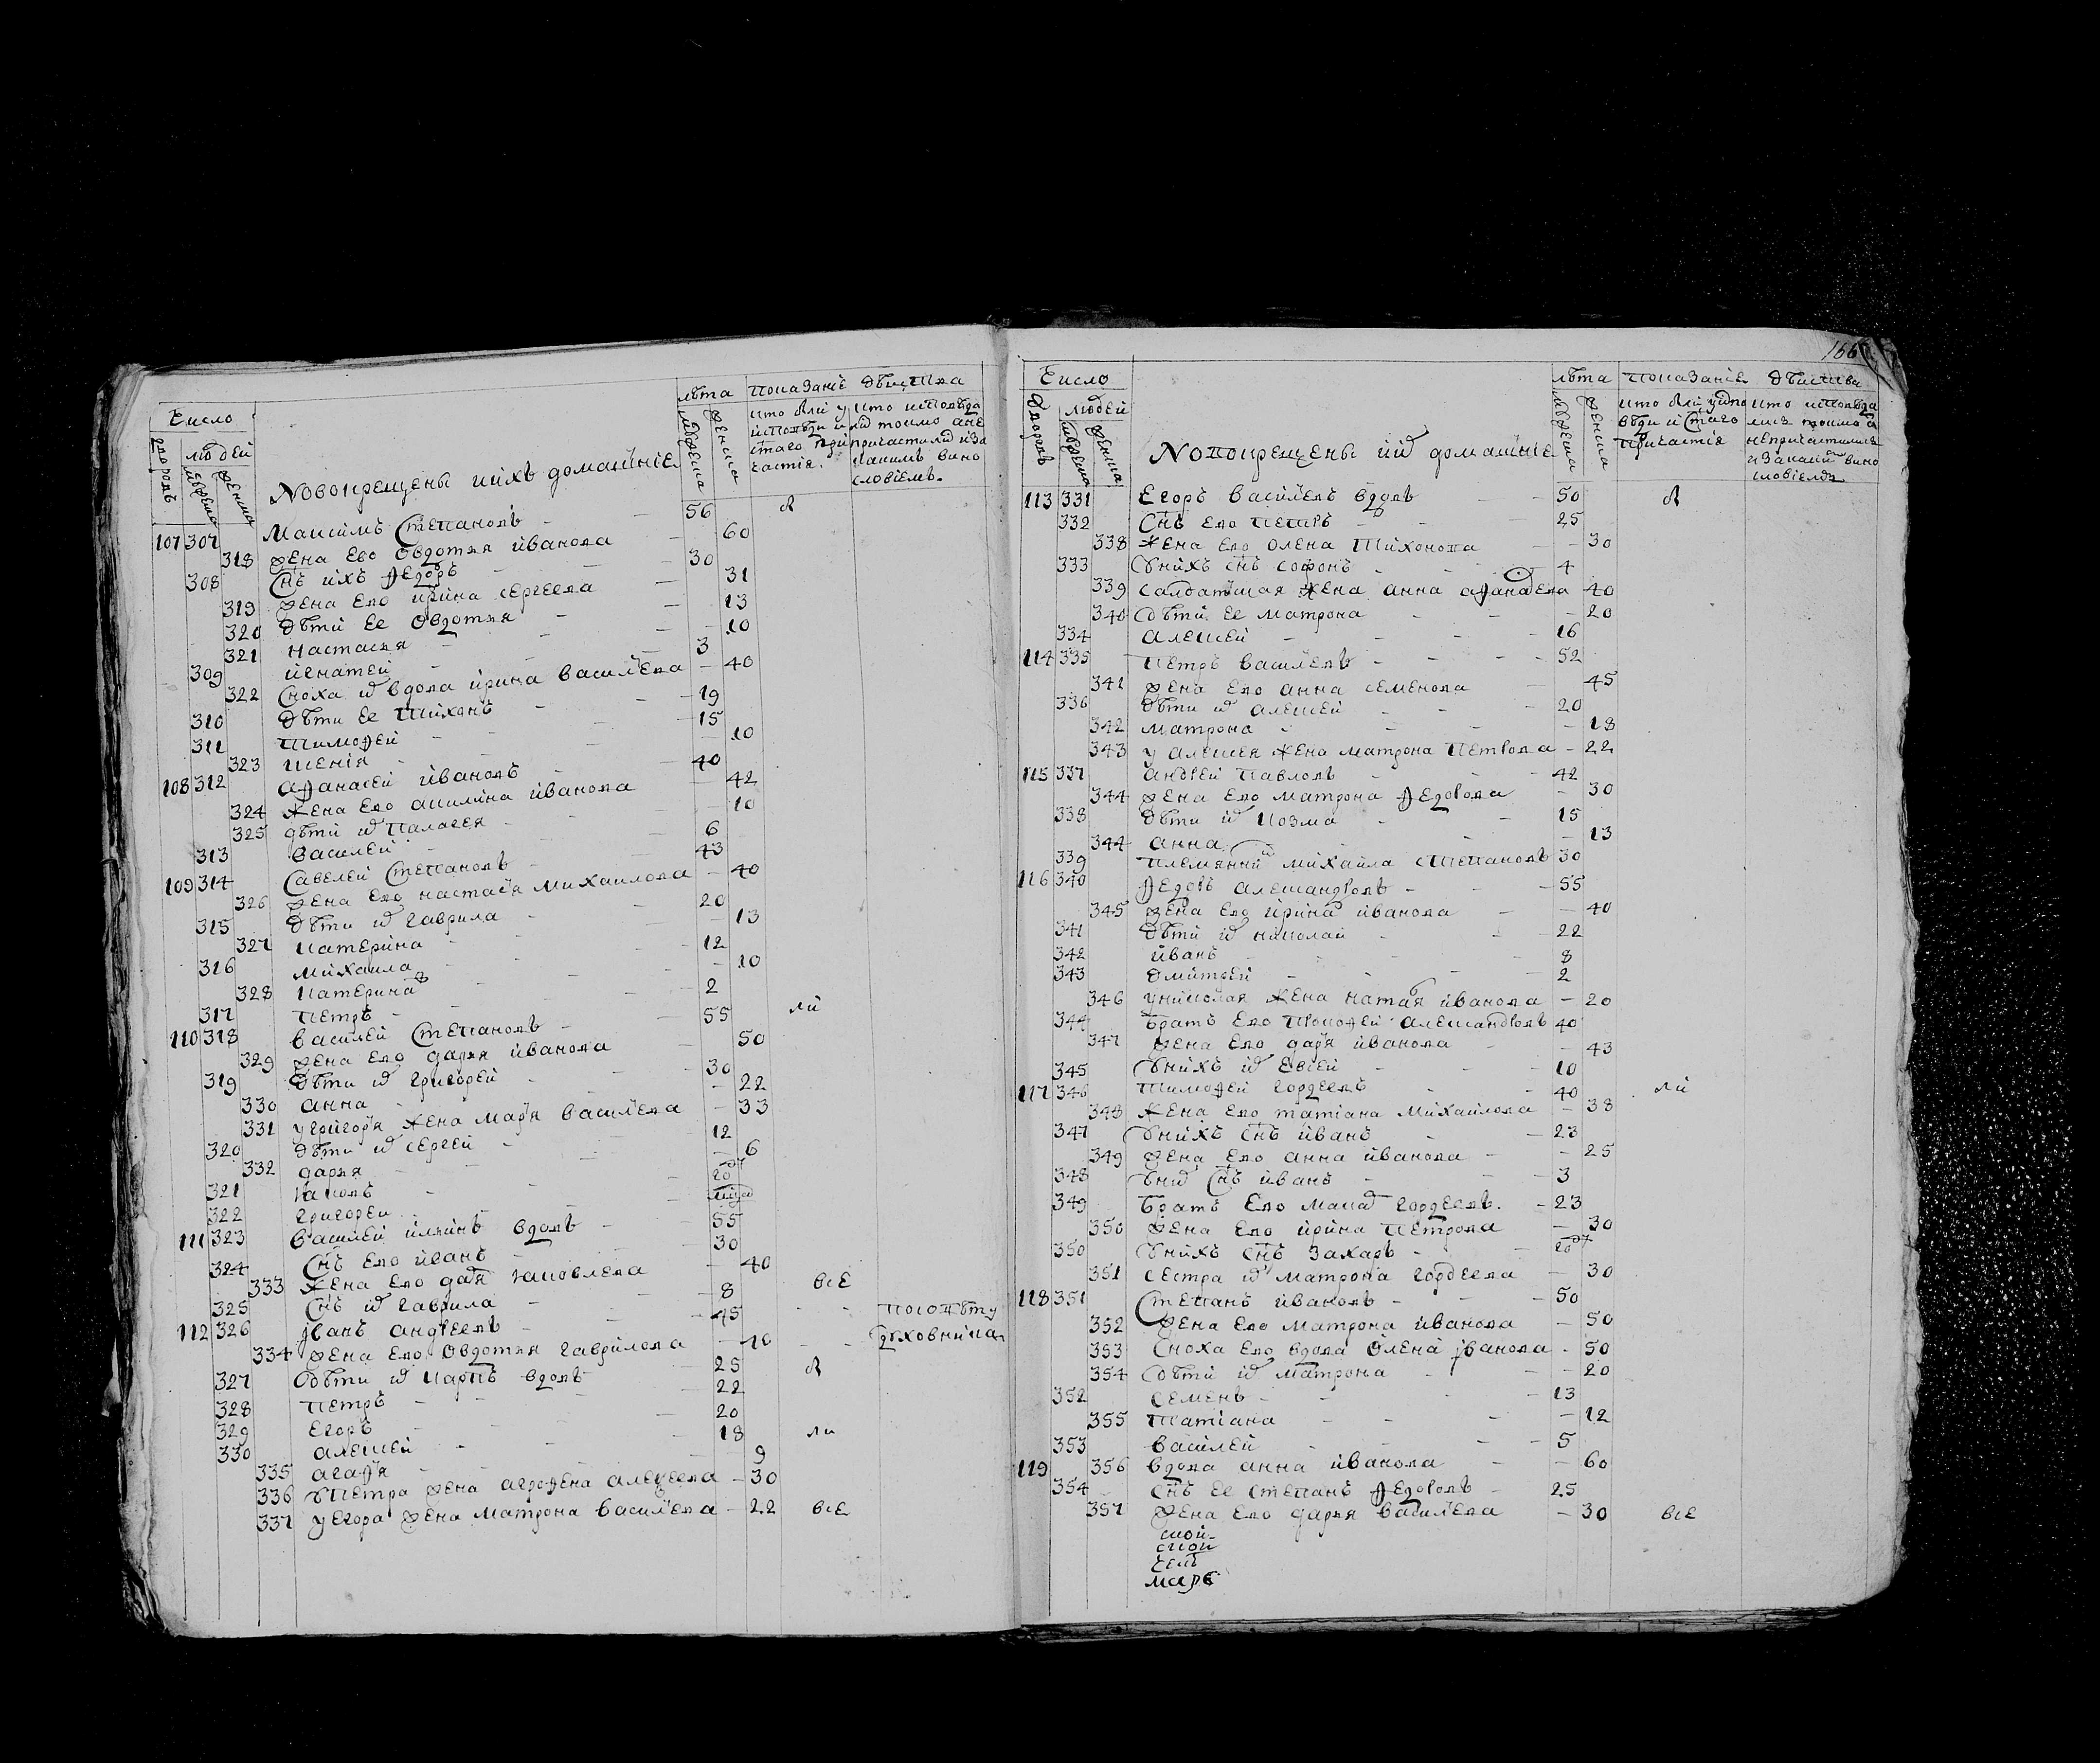 Число
лѣта показаніе дѣиства
дворовъ людей мужеска женска мужеска женска
Новокрещены ихъ домашніе
кто были у исповѣди и стаго причастія.
кто исповѣдались токмо а не причастились и за какимъ винословіемъ.
107 307 Максимъ Степановъ - - 56 бы
318 жена ево Овдотья иванова - 60
308 Снъ ихъ Ѳедоръ - - 30
319 жена ево ирина сергеева - 31
320 дѣти ее Овдотья - - 13
321 настасья - - 10
309 игнатей - - 3
322 Сноха их вдова ирина васильева - 40
310 дѣти ее Тихонъ - - 19
311 Тимоѳей - - 15
323 ксенія - - 10
108 312 аѳанасей ивановъ - 40
324 жена ево акилина иванова - 42
325 дѣти их Палагея - - 10
313 василей - - 6
109 314 Савелей Степановъ - 43
326 жена ево настасія михаилова - 40
315 дѣти их гаврила - - 20
327 катерина - - 13
316 михаила - - 12
328 катерина в - - 10
317 петръ - - 2
110 318 василей Степановъ - - 55 ли
329 жена ево дарья иванова - 50
319 дѣти их григорей - - 30
330 анна - - 22
331 у григорія жена марія васильева - 33
320 дѣти их сергей - - 12
332 дарья - - 6
321 яковъ - - год
322 григореи - -
111 323 василей ильинъ вдовъ - - 55
324 Снъ ево иванъ - - 30
333 жена ево дарья яковлева - 40
325 Снъ их гаврила - - 8 всѣ
112 326 иванъ андреевъ - - 45 - - по совѣту
334 жена ево Овдотья гаврилова - 40 - - духовника
327 дѣти их карпъ вдовъ - 25 бы
328 петръ - - 22
329 Егоръ - - 20
330 алексей - - 18 ли
335 агаѳія - - 9
336 у Петра жена агрофена алексеева - 30
337 у Егора жена матрона васильева - 22 всѣ
166
Число
лѣта показаніе дѣиства
дворовъ людей мужеска женска мужеска женска
Новокрещены их домашніе
кто были у исповѣди и стаго причастія
кто исповѣдались токмо а не причастились и за каким винословіемъ
113 331 Егоръ василевъ вдовъ - - 50 бы
332 Снъ ево петръ - - 25
338 жена ево олена Тихонова - - 30
333 У нихъ снъ софонъ - - 4
339 салдатская жена анна аѳанасева 40
340 дѣти ее матрона - - 20
334 алексей - - - - 16
114 335 петръ василевъ - - - 52
341 жена ево анна семенова - 45
336 дѣти их алексей - - 20
342 матрона - - - 18
343 у алексея жена матрона петрова - 22
115 337 андрей павловъ - 42
344 жена ево матрона Ѳедорова - 30
338 дѣти их козма - - 15
344 анна - - 13
339 племянник михаила степановъ 30
116 340 Ѳедоръ александровъ - - 55
345 жена ево ирина иванова - - 40
341 дѣти их николай - - - 22
342 иванъ - - - - 8
343 дмитрей - - - - 2
346 у николая жена наталя иванова - 20
344 братъ ево прокоѳей александровъ 40
347 жена ево дарья иванова - - 43
345 У нихъ их Евсей - - - 10
117 346 Тимоѳей гордеевъ - - 40 ли
348 жена ево татіана михаилова - 38
347 У нихъ снъ иванъ - - 23
349 жена ево анна иванова - - 25
348 У них снъ иванъ - - 3
349 братъ ево гордеевъ. - 23
350 жена ево ирина петрова - 30
350 У нихъ снъ захаръ - - год
351 сестра их матрона гордеева - 30
118 351 Степанъ ивановъ - - - 50
352 жена ево матрона иванова - 50
353 сноха ево вдова Олена иванова - 50
354 дѣти их матрона - - 20
352 семенъ - - - 13
355 татіана - - - - 12
353 василей - - - 5
119 356 вдова анна иванова - - 60
354 снъ ее степанъ Ѳедоровъ - 25
357 жена ево дарья васильева - 30 всѣ